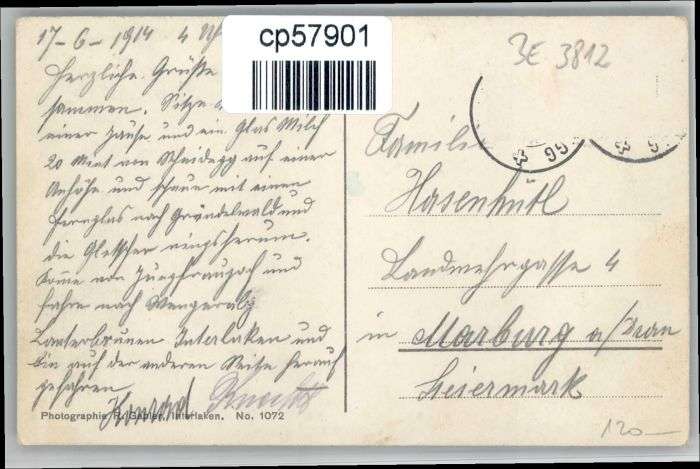 17-6-1914 4
cp57901
3E 3812
Herzliche Grüße
sammen. Sitze
einer Jause und ein Glas Milch
20 Mint von Scheidegg auf einer
Anhöhe und schaue mit einen
Fernglas nach Gründelwald und
die Gletscher ringsherum.
Komme von Jungfraujoch und
fahre nach Wengeralp
Lauterbrunen Interlaken und
bin auf der anderen Seite herauf
gefahren
Konrad
Photographie R. Gabler, Interlaken. No. 1072
Familie
Hasenhütl
Landwehrgasse 4
in Marburg a/Drau
Steiermark
120—